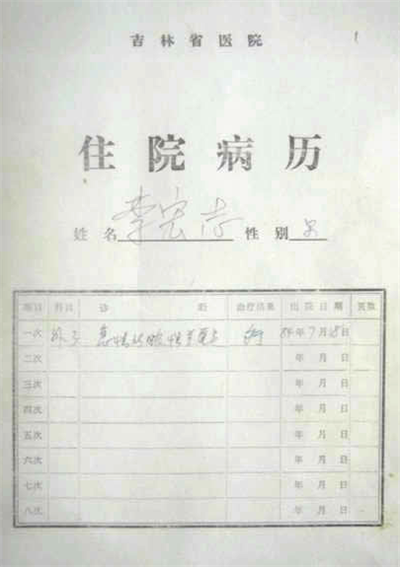 吉林省医院
住院病历
姓名 李宏志 性别 男
项目 科目 诊 断 治疗结果 出院日期 页数
一次 外二 急性化脓性阑尾炎 84年7月18日
二次 年 月 日
三次 年 月 日
四次 年 月 日
五次 年 月 日
六次 年 月 日
七次 年 月 日
八次 年 月 日